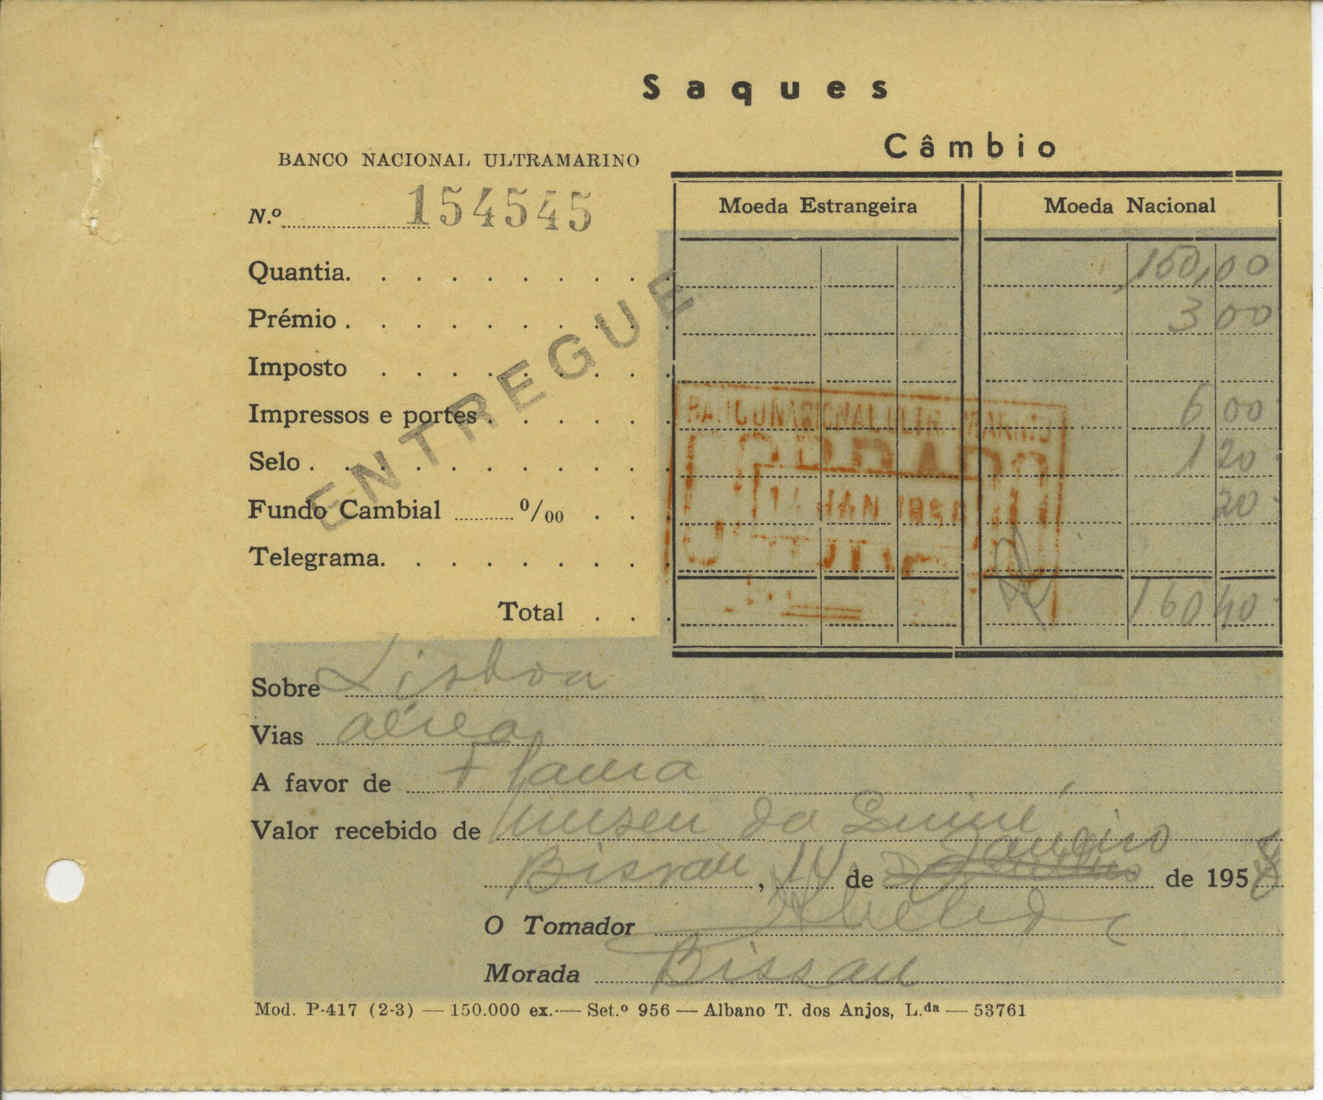 Saques
Câmbio
BANCO NACIONAL ULTRAMARINO
N.º 154545
Moeda Estrangeira Moeda Nacional
Quantia. 150,00
Prémio. 3 00
Imposto
Impressos e portes. 6 00
Selo. 1 20
Fundo Cambial 0/00 20
Telegrama.
Total 160 40
ENTREGUE
BANCO NACIONAL ULTRAMARINO
14 JAN 195
Sobre Lisboa
Vias aérea
A favor de Flama
Valor recebido de Museu da Guiné
Bissau, 14 de Janeiro de 1958
O Tomador
Morada Bissau
Mod. P-417 (2-3) — 150.000 ex. — Set.º 956 — Albano T. dos Anjos, L.da — 53761